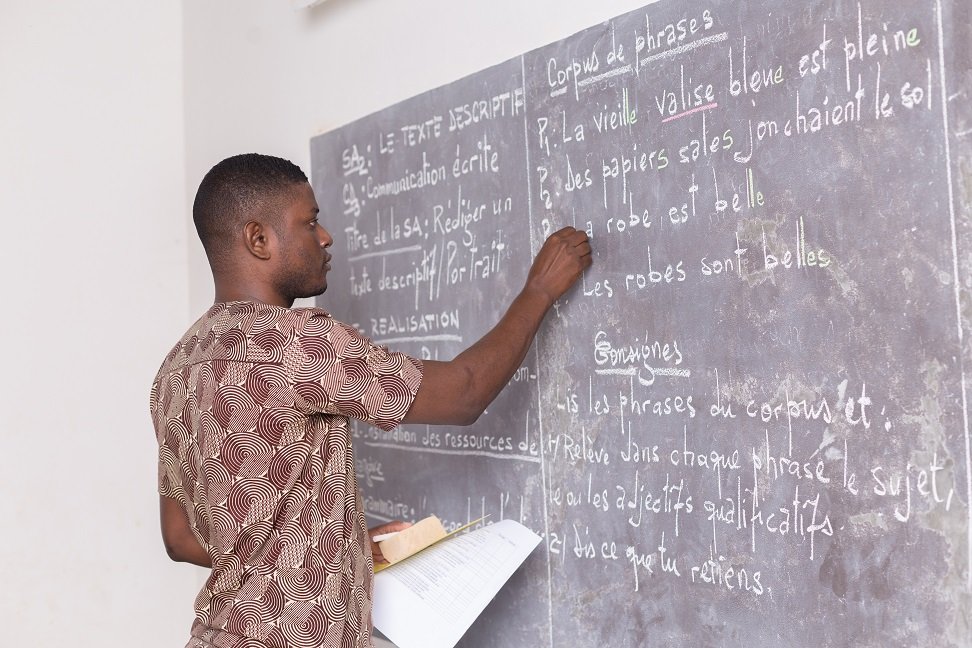 SA2: LE TEXTE DESCRIPTIF
CA: Communication écrite
Titre de la SA: Rédiger un
texte descriptif/Portrait
REALISATION
des ressources de
grammaire:
Corpus de phrases
P1: La vieille valise bleue est pleine
P2: Des papiers sales jonchaient le sol
robe est belle
Les robes sont belles
Consignes
Lis les phrases du corpus et:
1/ Relève dans chaque phrase le sujet,
le ou les adjectifs qualificatifs.
2/ Dis ce que tu retiens.